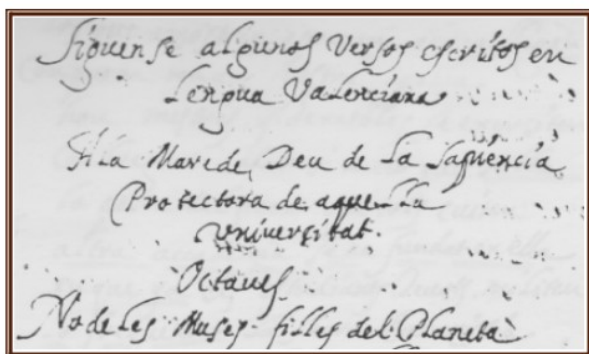 Siguense algunos Versos escritos en
Lengua Valenciana
A la Mare de Deu de la Sapiencia
Protectora de aquella
Vniversitat.
Octaves
No de les Muses filles del Planeta